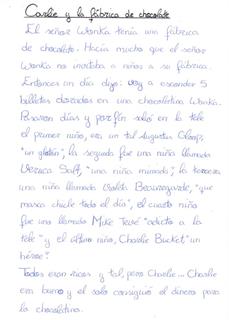 Carlie y la fábrica de chocolate
El señor Wonka tenía una fábrica
de chocolate. Hacía mucho que el señor
Wonka no invitaba a niños a su fábrica.
Entonces un día dijo: voy a esconder 5
billetes dorados en una chocolatina Wonka.
Pasaron días y por fin salió en la tele
el primer niño, era un tal Augustus Gloop,
"un glotón", la segunda fue una niña llamada
Veruca Salt, "una niña mimada", la tercera
una niña llamada Violeta Beauregarde, "que
masca chicle todo el día", el cuarto niño
fue uno llamado Mike Tevé "adicto a la
tele" y el último niño, Charlie Bucket "un
héroe".
Todos eran ricos y tal, pero Charlie... Charlie
era bueno y el solo consiguió el dinero para
la chocolatina.